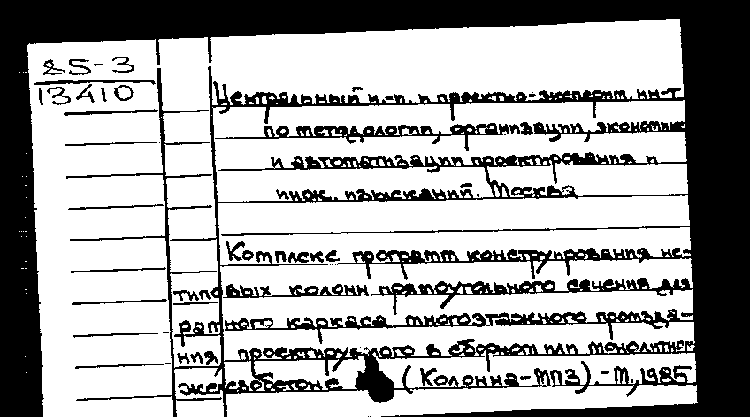 85-3
13410
Центральный н.-и. и проектно-эксперим. ин-т
по методологии, организации, экономике
и автоматизации проектирования и
инж. изысканий. Москва
Комплекс программ конструирования не-
типовых колонн прямоугольного сечения для
рамного каркаса многоэтажного промзда-
ния, проектируемого в сборном или монолитном
железобетоне (Колонна-МПЗ).-М., 1985